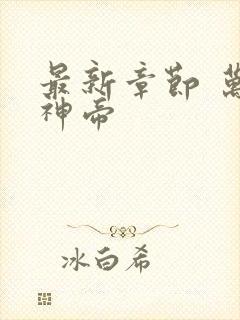 最新章節 萬
神帝
冰白希